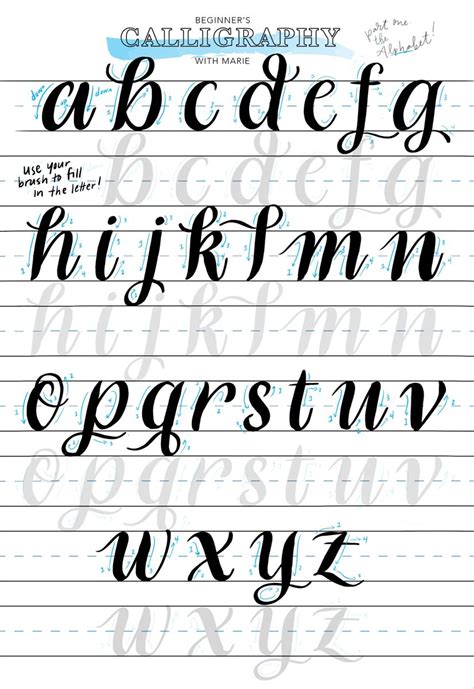 BEGINNER'S
CALLIGRAPHY
WITH MARIE
part one:
the
Alphabet!
down up down
a b c d e f g
use your
brush to fill
in the letter!
b c d e f g
h i j k l m n
h i j k l m n
o p q r s t u v
o p q r s t u v
w x y z
w x y z